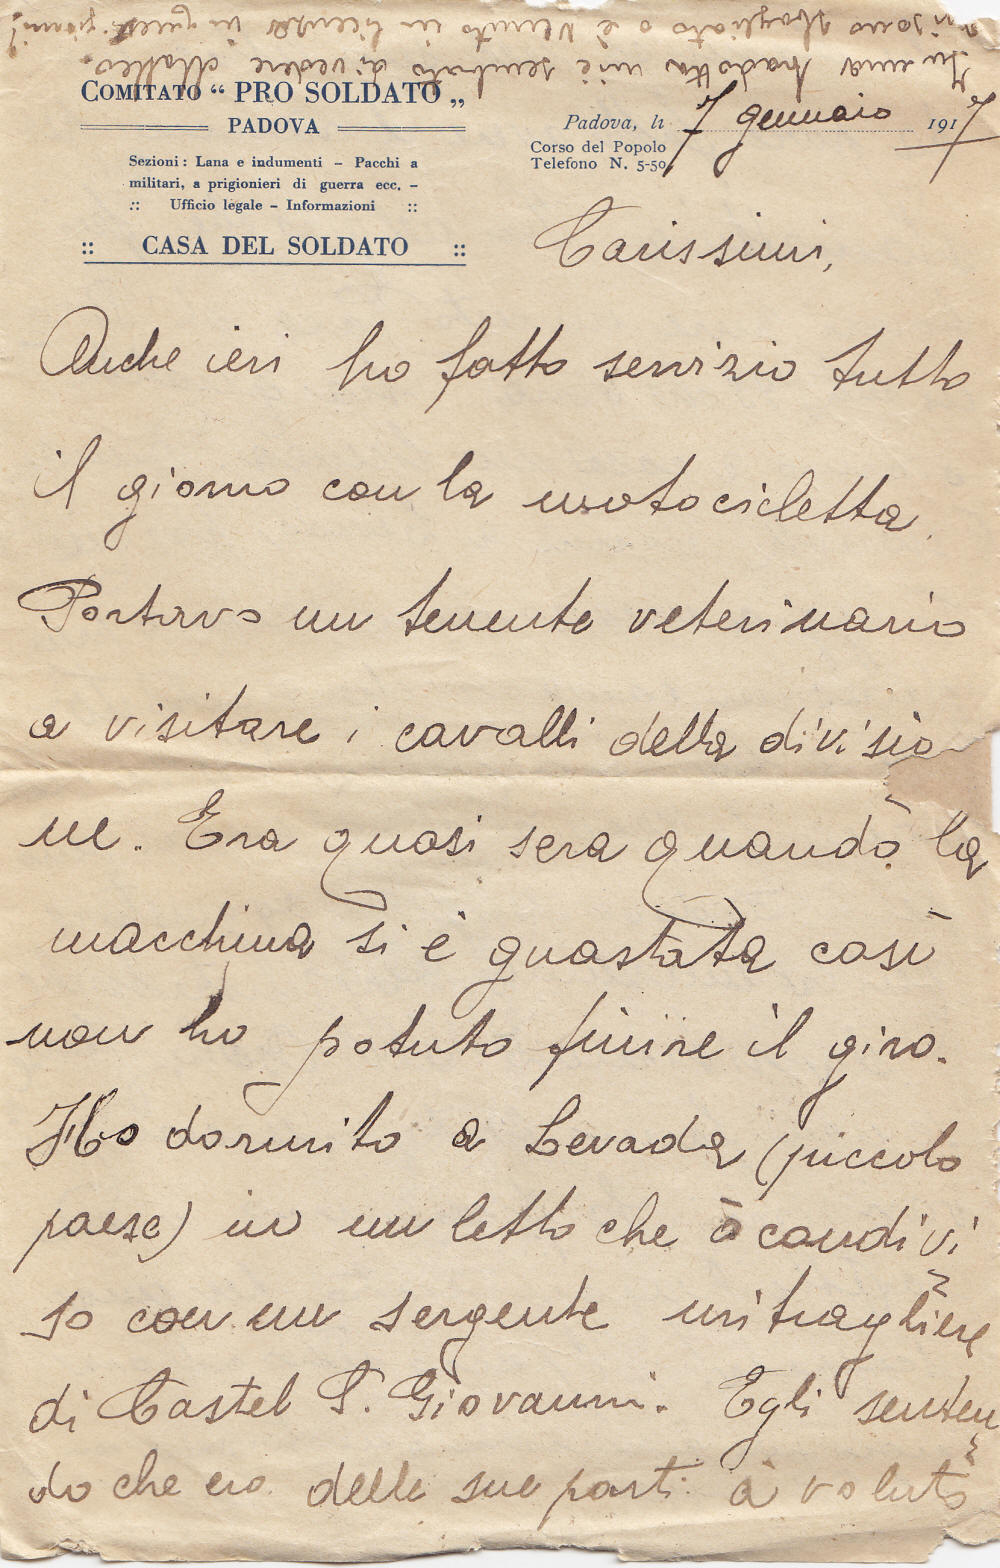 In una tradotta mi è sembrato di vedere Matteo.
mi sono sbagliato o è venuto in licenza in questi giorni?
COMITATO “ PRO SOLDATO „
PADOVA
Sezioni: Lana e indumenti – Pacchi a
militari, a prigionieri di guerra ecc. –
.:: Ufficio legale – Informazioni ::
:: CASA DEL SOLDATO ::
Padova, li 7 gennaio 1917
Corso del Popolo
Telefono N. 5-50
Carissimi,
Anche ieri ho fatto servizio tutto
il giorno con la motocicletta.
Portavo un tenente veterinario
a visitare i cavalli della divisio
ne. Era quasi sera quando la
macchina si è guastata così
non ho potuto finire il giro.
Ho dormito a Levada (piccolo
paese) in un letto che ò condivi
so con un sergente mitragliere
di Castel S. Giovanni. Egli senten
do che ero delle sue parti à voluto